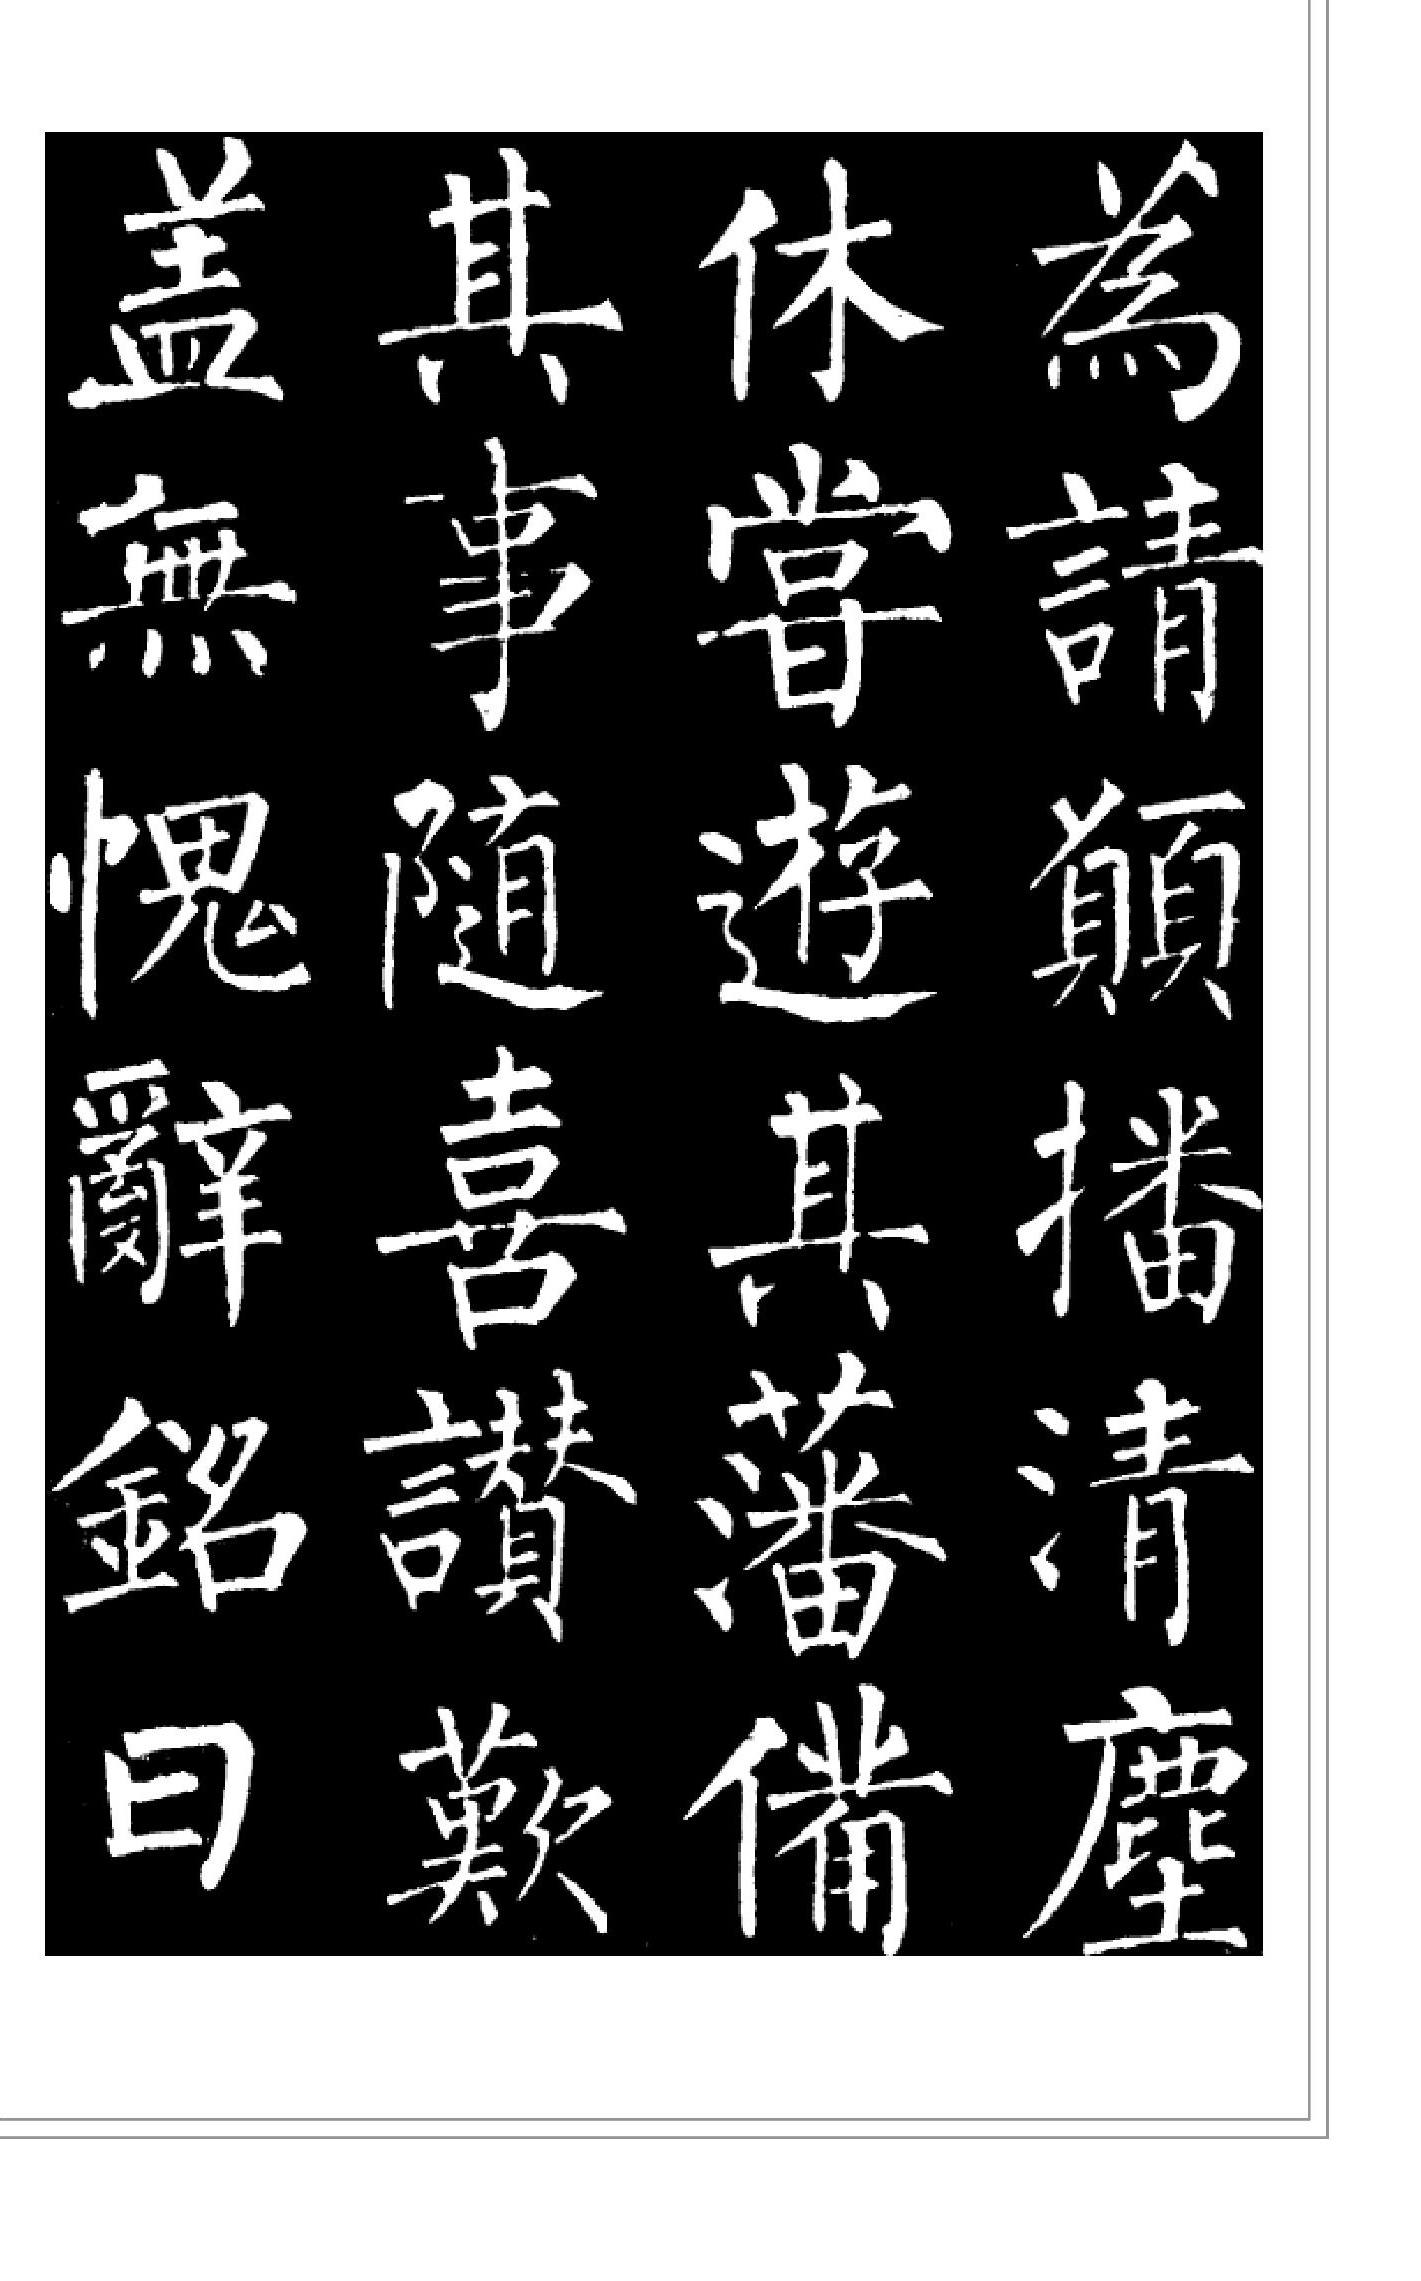 為請願播清塵
休嘗遊其藩備
其事随喜讃歎
盖無愧辭銘曰